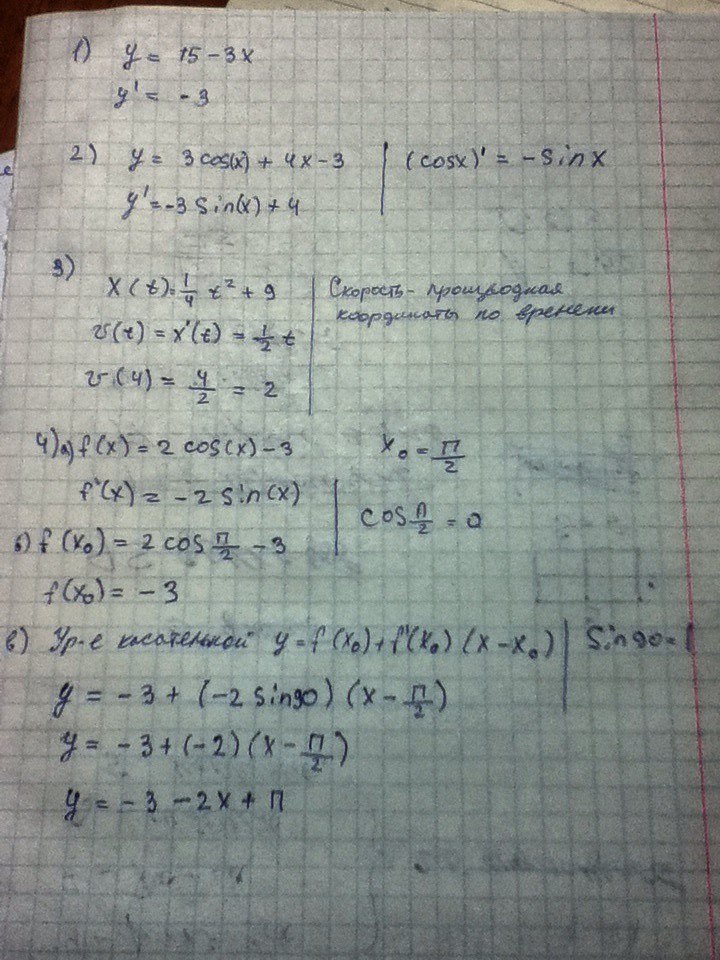 1) y = 15 - 3x
y' = - 3
2) y = 3 cos(x) + 4x - 3 | (cosx)' = - sin x
y' = -3 sin(x) + 4
3)
x(t) = 1/4 t² + 9 | Скорость - производная
координаты по времени
v(t) = x'(t) = 1/2 t
v(4) = 4/2 = 2
4) а) f(x) = 2 cos(x) - 3 x₀ = П/2
f'(x) = - 2 sin(x) | cos П/2 = 0
б) f(x₀) = 2 cos П/2 - 3
f(x₀) = - 3
в) Ур-е касательной y = f(x₀) + f'(x₀) (x - x₀) | sin 90 = 1
y = - 3 + (-2 sin90) (x - П/2)
y = - 3 + (-2) (x - П/2)
y = - 3 - 2x + П